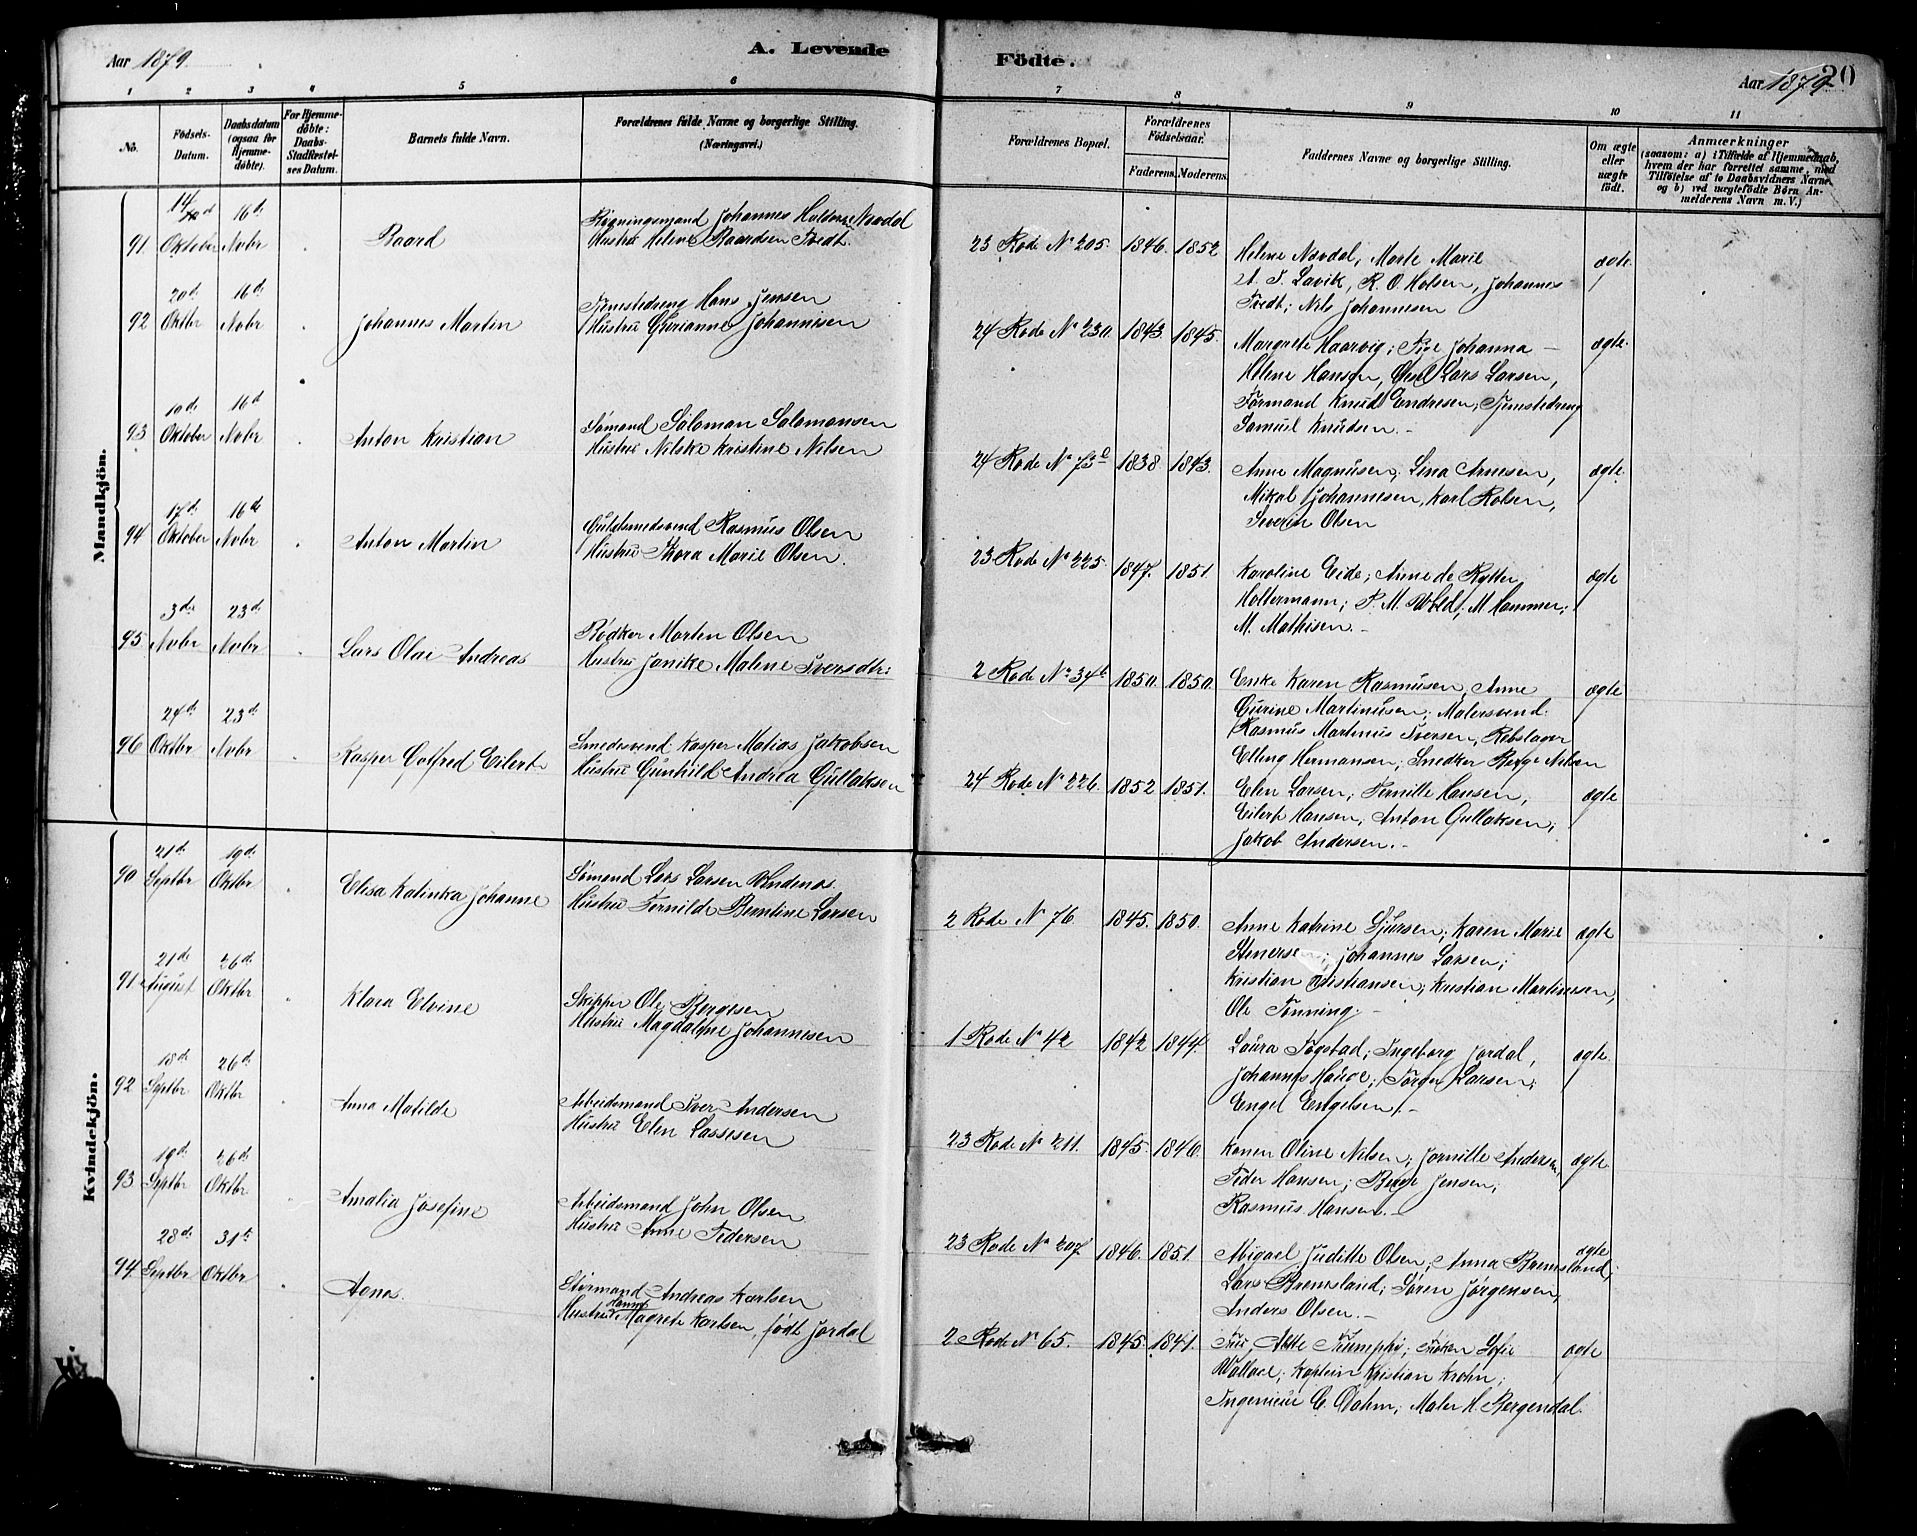 Aar 1879.
A. Levende
Födte.
Aar 1879
20
1 2 3 4 5 6 7 8 9 10 11
No.
Födsels-Datum.
Daabsdatum (ogsaa for Hjemme-döbte).
For Hjemme-döbte: Daabs-Stadfæstel-ses Datum.
Barnets fulde Navn.
Forældrenes fulde Navne og borgerlige Stilling.
(Næringsvei.)
Forældrenes Bopæl.
Forældrenes Födselsaar.
Faderens. Moderens.
Faddernes Navne og borgerlige Stilling.
Om ægte eller uægte födt.
Anmærkninger
(saasom: a) i Tilfælde af Hjemmedaab, hvem der har forrettet samme, med Tilföielse af to Daabsvidners Navne og b) ved uægtefödte Börn An-melderens Navn m. V.)
Mandkjön.
91. 14 Oktober 16d Nobr Baard
Johannes Nævdal
Hustru Helene Baardsen Tvedt.
23 Rode No 205. 1846. 1852
Helene Nævdal, Marte Marie
A. T. Lavik, R. O. Holsen, Johannes
Tvedt; Nils Johannesen
ægte.
92 20d Oktbr 16d Nobr Johannes Martin
Tjenestedreng Hans Jensen
Hustru Johannesen
24 Rode No 230. 1843. 1845.
Margrete Haarvig; Pige Johanna
Helene Hansen, Lars Larsen,
Formand Knud Endresen; Tjenestedreng
Samuel Knudsen.
ægte.
93 10d Oktober 16d Nobr Anton Kristian
Sømand Salomon Salomonsen
Hustru Nilske Kristine Nilsen
24 Rode No 73 1838. 1843.
Anne Magnusen; Lina Arnesen,
Mikal Johannesen, Karl Rolsen,
Severin Olsen
ægte.
94 17d Oktober 16d Nobr Anton Martin
Guldsmedsvend Rasmus Olsen
Hustru Thora Marie Olsen.
23 Rode No 225. 1847. 1851.
Karoline Eide; Anne de Rytter
Holtermann; P. M. M. Hammer;
M. Mathisen.
ægte
95 3d Nobr 23d Nobr Lars Olai Andreas
Bødker Morten Olsen
Hustru Janike Malene Iversdtr:
2 Rode No 34b 1850. 1850.
Enke Karen Rasmusen, Anne
Gurine Martinusen; Malersvend
Rasmus Martinus Iversen, Rebslager
Elling Hermansen; Snedker Berge Nilsen
ægte
96 24d Oktbr 23d Nobr Kasper Gotfred Eilert
Smedesvend Kasper Matias Jakobsen
Hustru Gunhild Andrea Gullaksen
24 Rode No 226. 1852 1851.
Elen Larsen; Pernille Hansen,
Eilert Hansen; Anton Gullaksen;
Jakob Andersen.
ægte
Kvindekjön.
90 21d Septbr 19d Oktbr Elisa Katinka Johanne
Sømand Lars Larsen
Hustru Berntine Larsen
2 Rode No 76 1845. 1850.
Anne Katrine Sjursen; Karen Marie
Johannes Larsen;
Kristian Kristiansen; Kristian Martinusen,
Ole Tonning.
ægte
91 21d August 26d Oktbr Klara Elvine
Skipper Ole Bergesen
Hustru Magdalene Johannesen
1 Rode No 42 1842 1844.
Laura Fogstad; Ingeborg Jordal,
Johannes Jørgen Larsen;
Engel Engelsen.
ægte.
92 18d Septbr 26d Oktbr Anna Matilde
Arbeidsmand Iver Andersen
Hustru Elen Lassesen
23 Rode No 211. 1845. 1846.
Karen Oline Nilsen; Andersen
Peder Hansen; Berge Jensen;
Rasmus Hansen.
ægte.
93 19d Septbr 26d Oktbr Amalia Josefine
Arbeidsmand John Olsen
Hustru Anne Pedersen
23 Rode No 207 1846. 1851.
Migael Juditte Olsen; Anna Bremsland;
Lars Bremsland; Søren Jørgensen,
Anders Olsen.
ægte
94 28d Septbr 31te Oktbr Agnes.
Styrmand Andreas Karlsen
Hustru Hanna Magrete Karlsen, født Jordal
2 Rode No 65. 1845. 1841.
Frøken Sofie
Wallace; Kaptein Kristian Krohn;
Ingeniør C. Dahm; Maler H. Bergendal.
ægte